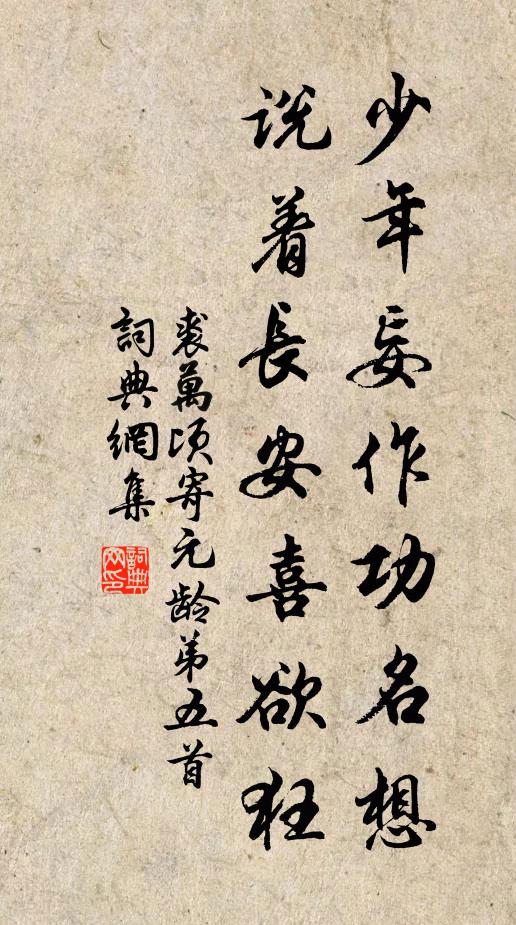 少年妄作功名想
说着長安喜欲狂
裘萬頃寄元龄弟五首
詞典網集
詞典網印